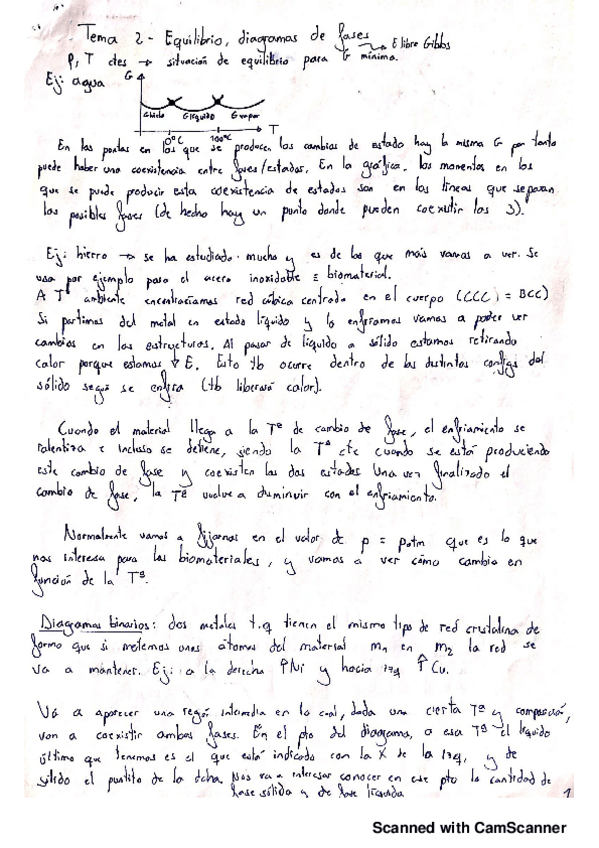 Tema 2 - Equilibrio, diagramas de fases
E libre Gibbs
P, T ctes → situación de equilibrio para G mínima.
Ej: agua
G
Ghielo Glíquido Gvapor
T
0°C 100°C
En los puntos en los que se producen los cambios de estado hay la misma G por tanto
puede haber una coexistencia entre fases/estados. En la gráfica, los momentos en los
que se puede producir esta coexistencia de estados son en las líneas que separan
las posibles fases (de hecho hay un punto donde pueden coexistir los 3).
Ej: hierro → se ha estudiado mucho y es de los que más vamos a ver. Se
usa por ejemplo para el acero inoxidable ≡ biomaterial.
A Tª ambiente encontraríamos red cúbica centrada en el cuerpo (CCC) = BCC)
Si partimos del metal en estado líquido y lo enfriamos vamos a poder ver
cambios en las estructuras. Al pasar de líquido a sólido estamos retirando
calor porque estamos ↓ E. Esto tb ocurre dentro de las distintas configs del
sólido según se enfría (tb liberará calor).
Cuando el material llega a la Tª de cambio de fase, el enfriamiento se
ralentiza e incluso se detiene, siendo la Tª cte cuando se está produciendo
este cambio de fase y coexisten los dos estados. Una vez finalizado el
cambio de fase, la Tª vuelve a disminuir con el enfriamiento.
Normalmente vamos a fijarnos en el valor de p = patm que es lo que
nos interesa para los biomateriales, y vamos a ver cómo cambia en
función de la Tª.
Diagramas binarios: dos metales t.q tienen el mismo tipo de red cristalina de
forma que si metemos unos átomos del material m1 en m2 la red se
va a mantener. Ej: a la derecha ↑Ni y hacia izq ↑Cu.
Va a aparecer una región intermedia en la cual, dada una cierta Tª y composición,
van a coexistir ambas fases. En el pto del diagrama, a esa Tª el líquido
último que tenemos es el que está indicado con la X de la izq, y de
sólido el puntito de la dcha. Nos va a interesar conocer en ese pto la cantidad de
fase sólida y de fase líquida
1
Scanned with CamScanner